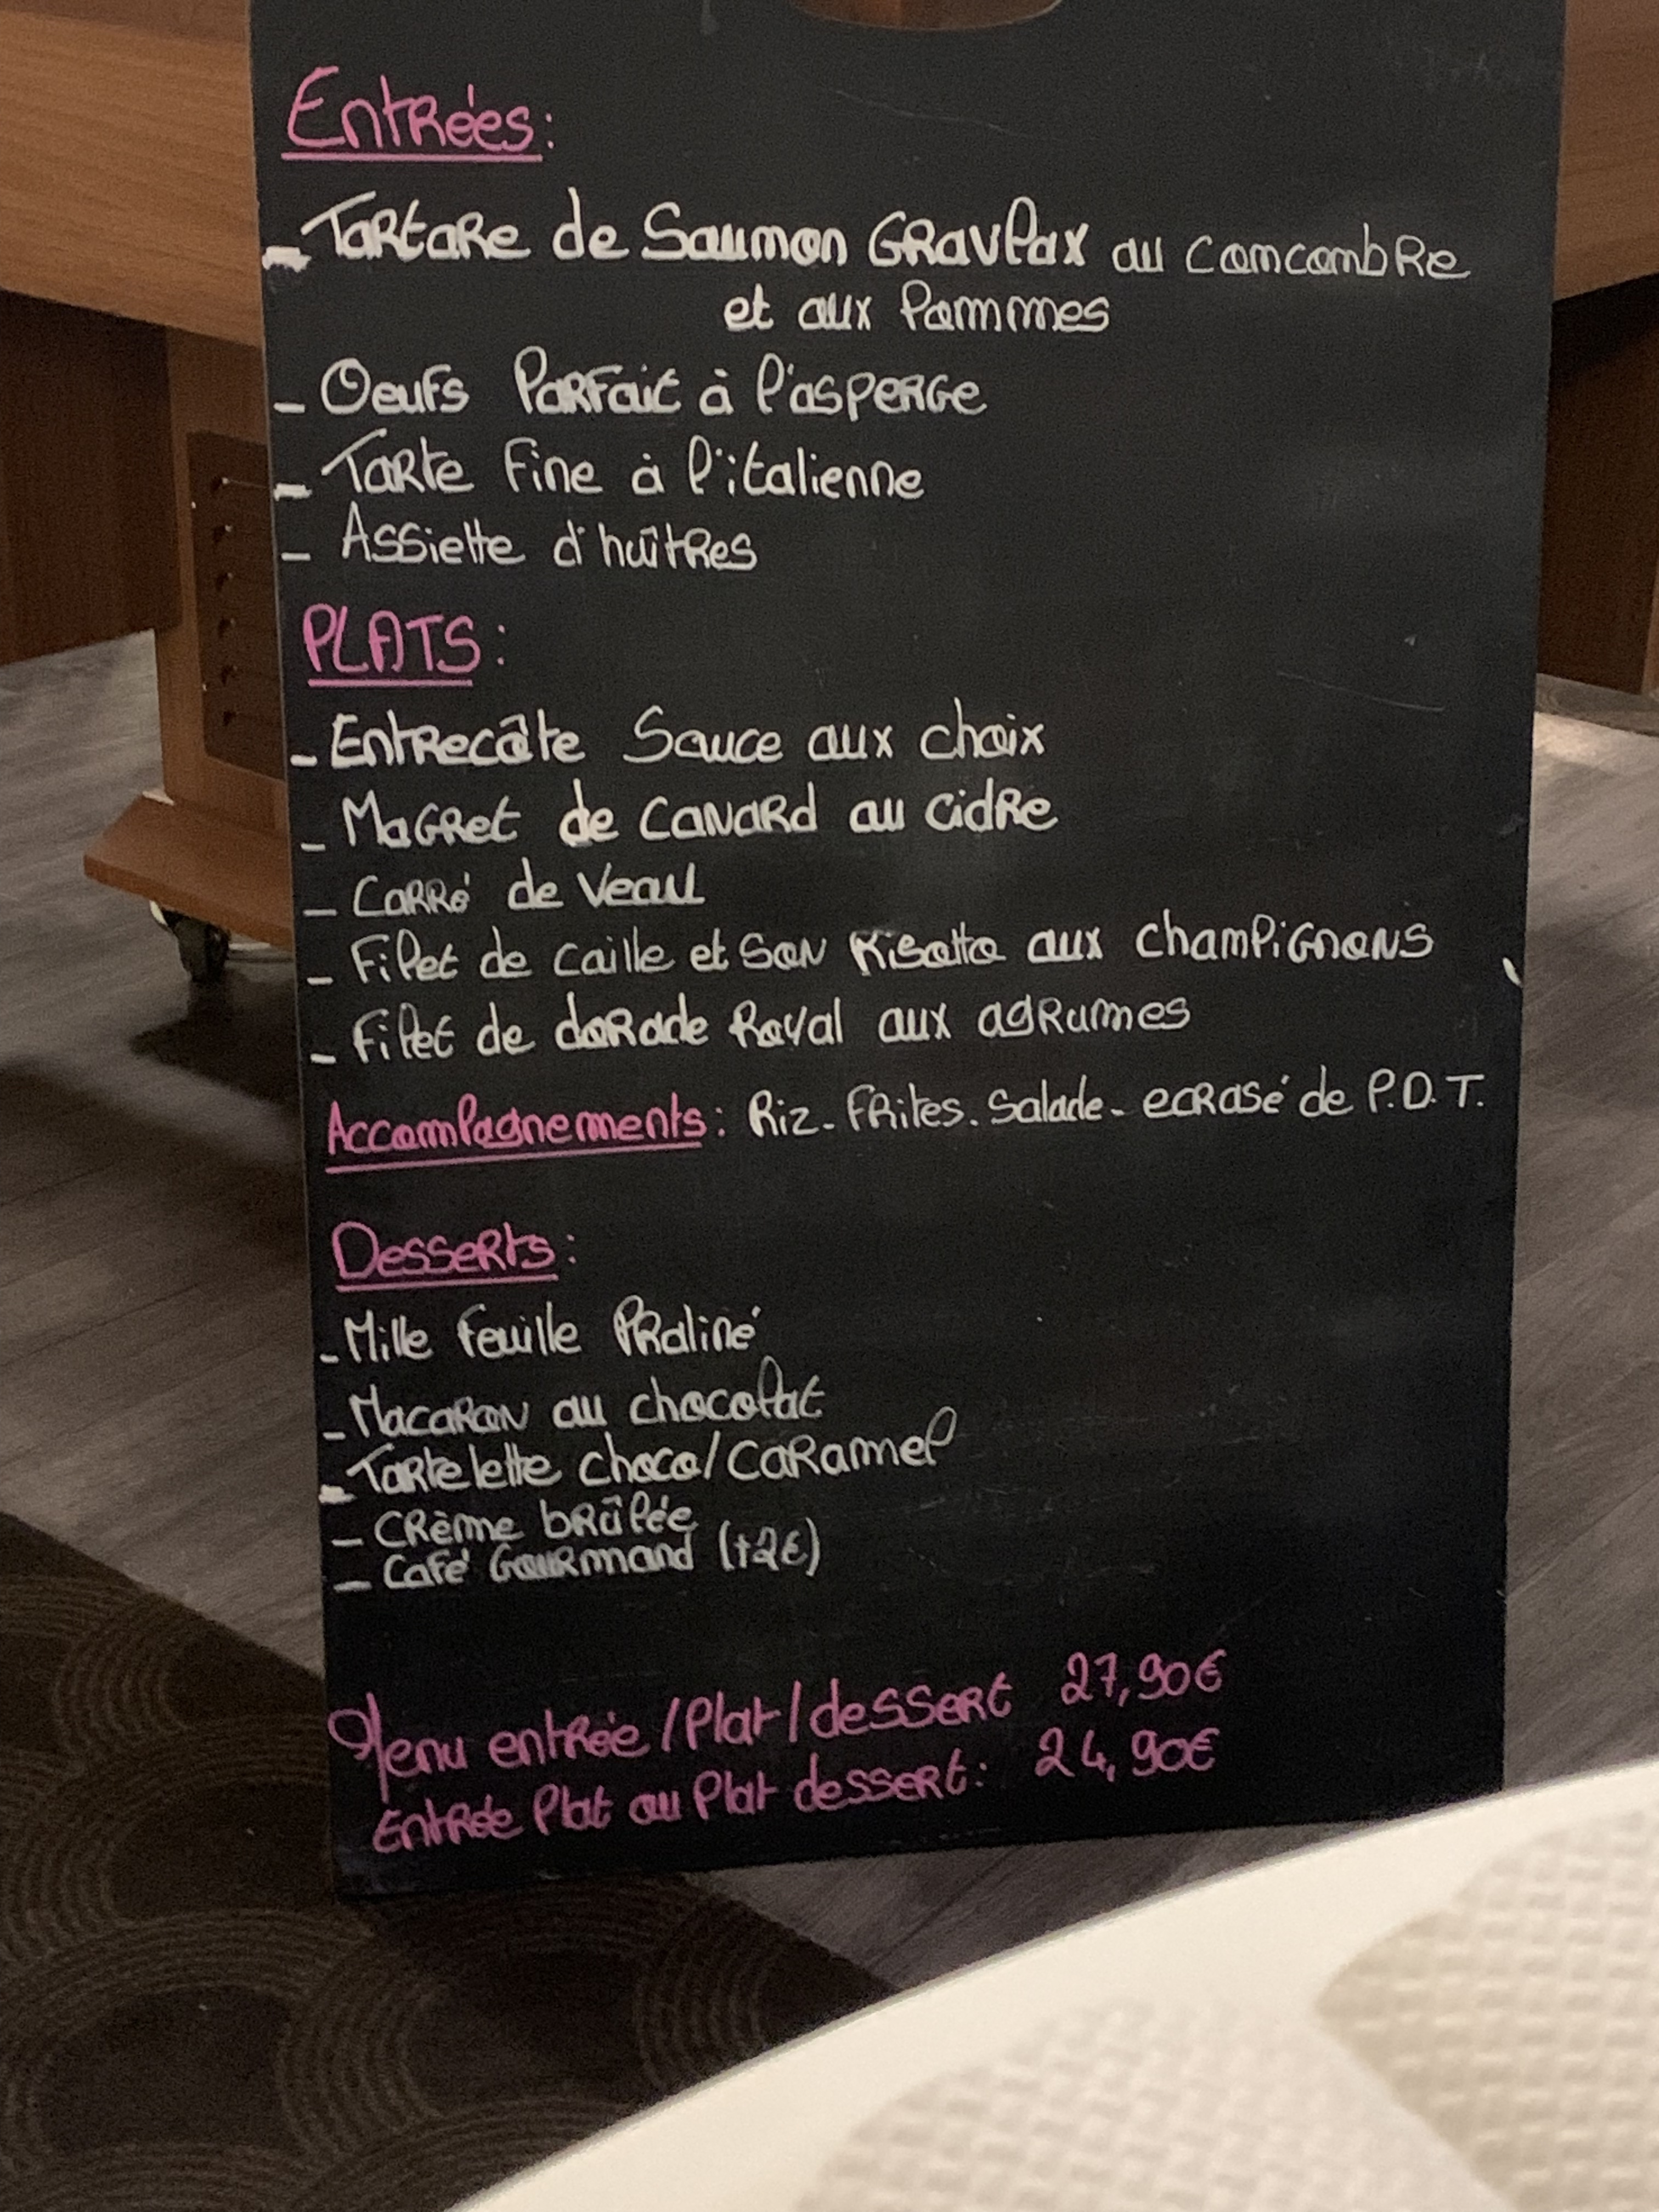 Entrées:
- Tartare de Saumon Gravlax au concombre
et aux Pommes
- Oeufs Parfait à l'asperge
- Tarte fine à l'italienne
- Assiette d'huîtres
PLATS:
- Entrecôte Sauce aux choix
- Magret de canard au cidre
- Carré de Veau
- Filet de caille et son Risotto aux champignons
- Filet de dorade Royal aux agrumes
Accompagnements: Riz - Frites. Salade - ecrasé de P.D.T.
Desserts:
- Mille feuille Praliné
- Macaron au chocolat
- Tartelette choco/caramel
- Crème brûlée
- Café Gourmand (+2€)
Menu entrée / Plat / dessert 27,90€
Entrée Plat ou Plat dessert: 24,90€